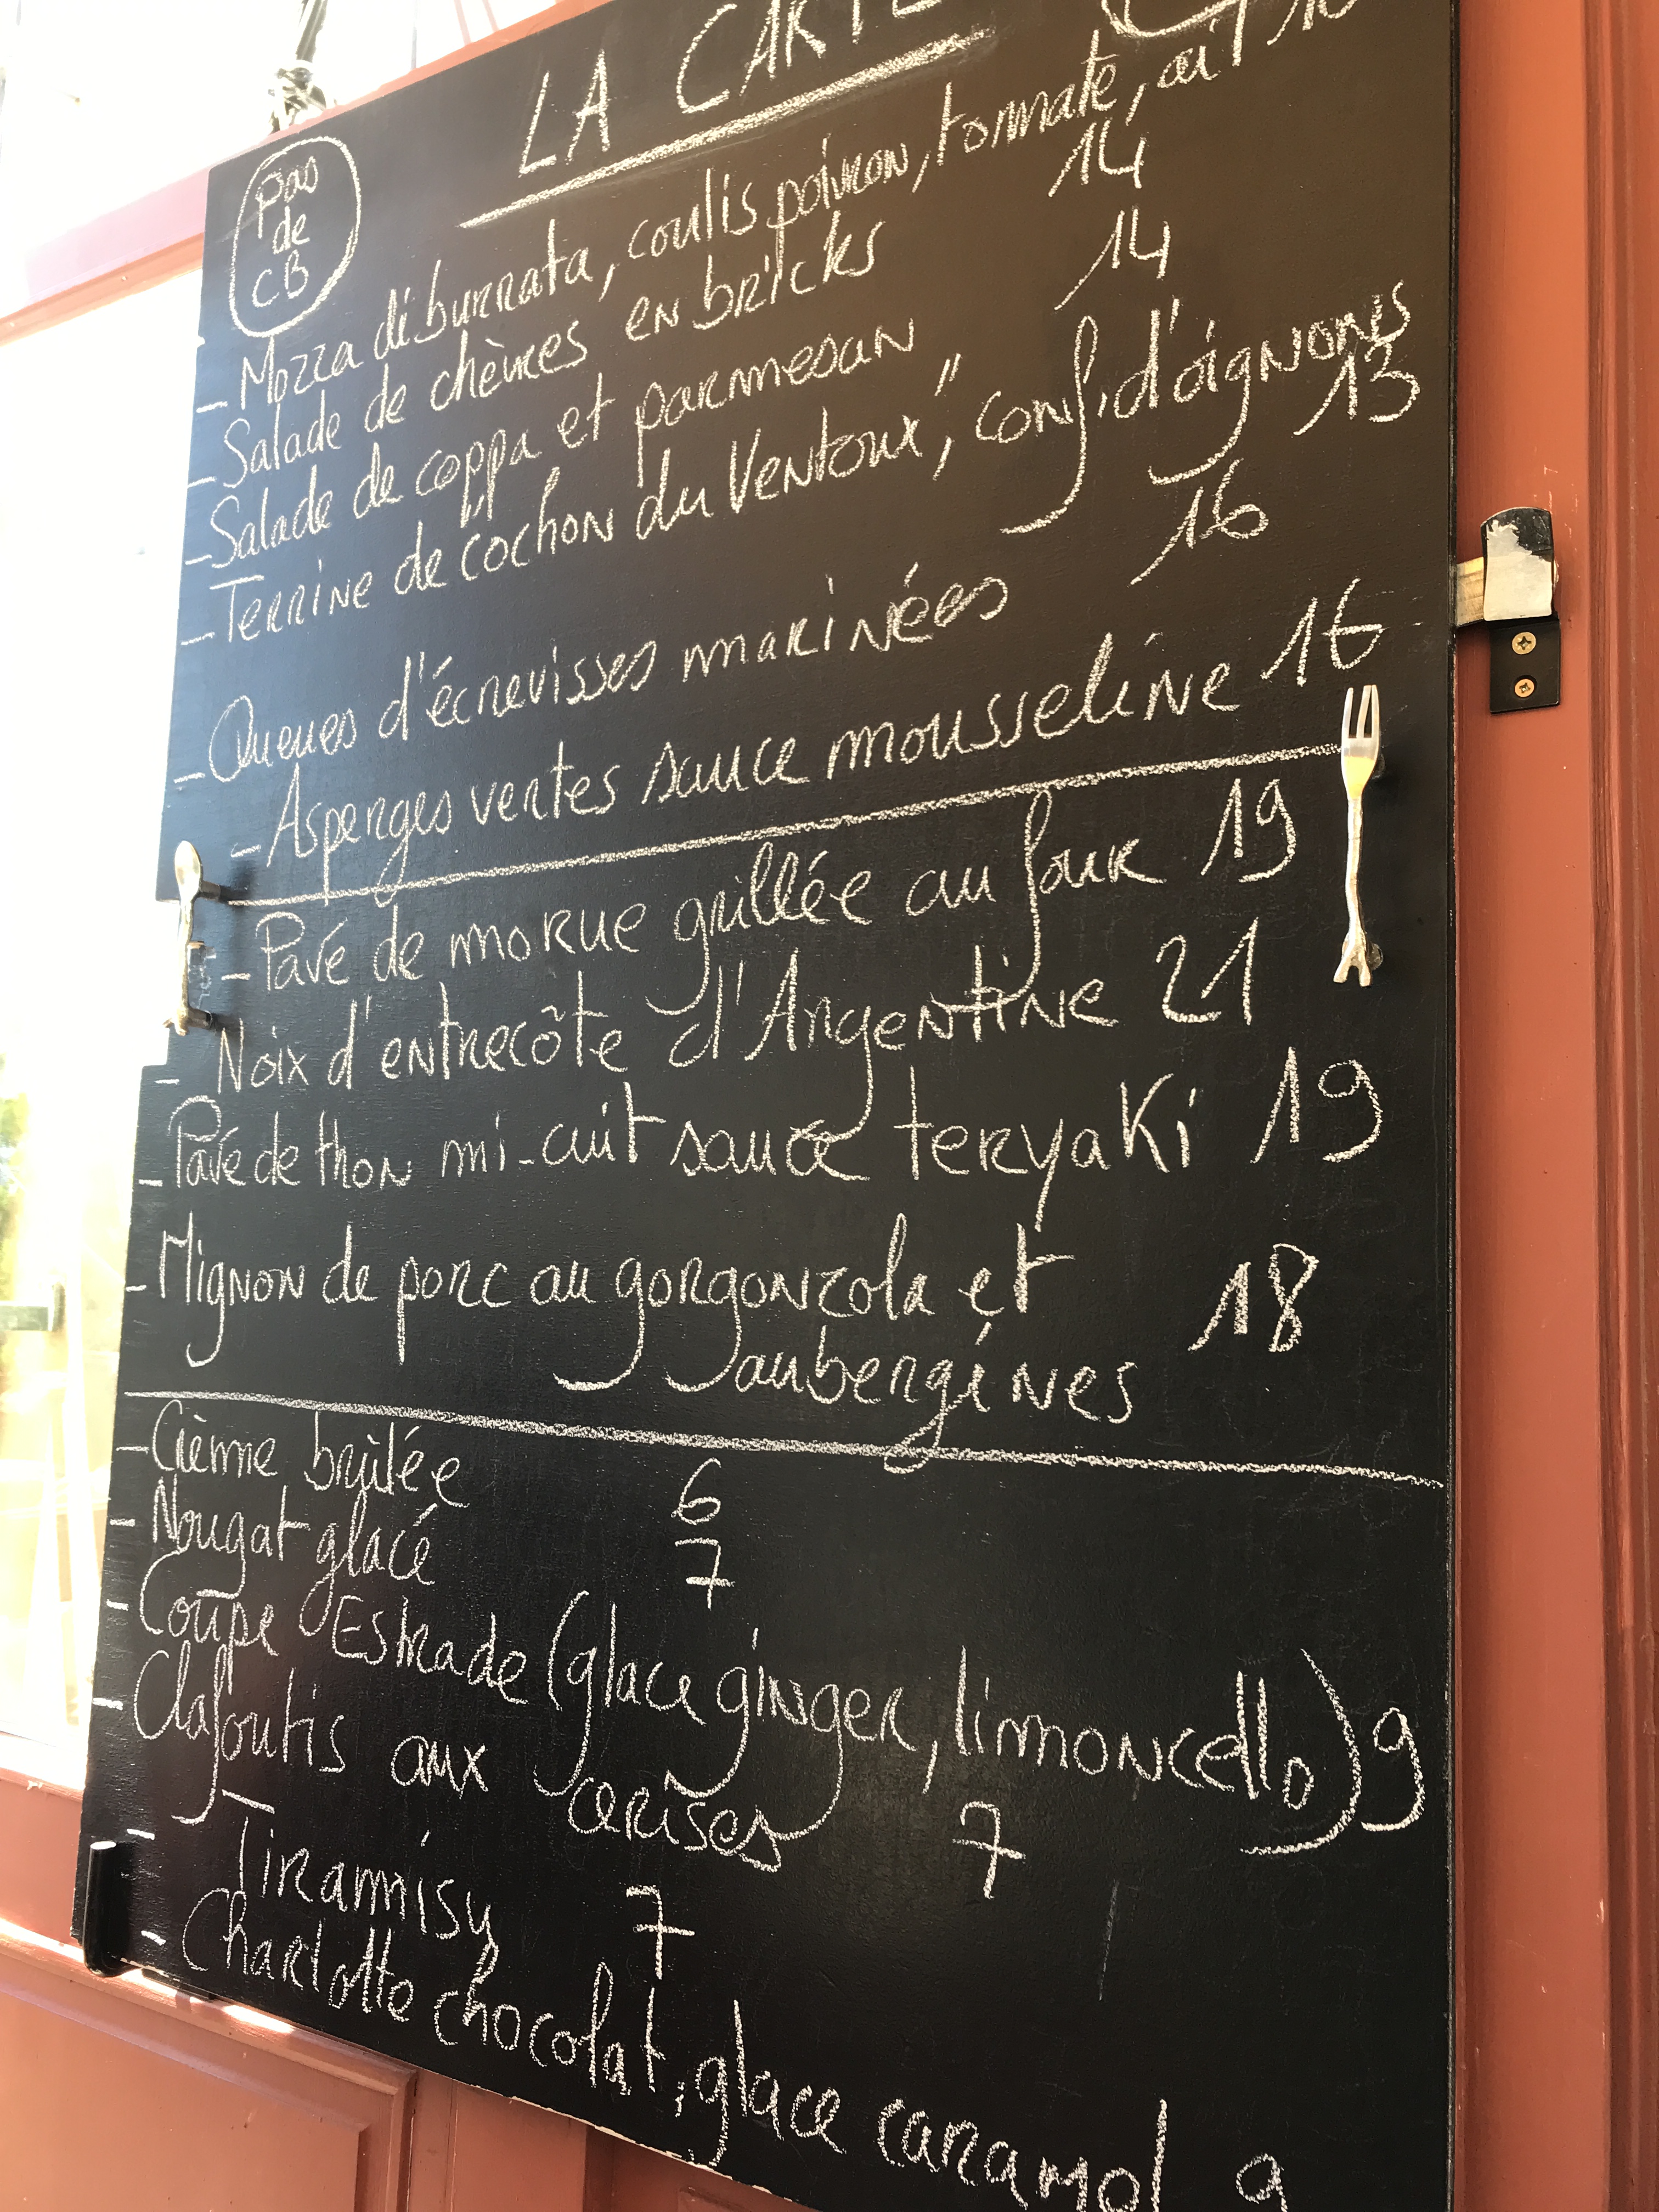 LA CARTE
Pas
de
CB
- Mozza di burrata, coulis poivron, tommate, ail
- Salade de chèvres en bricks 14
- Salade de coppa et parmesan 14
- Terrine de cochon du Ventoux", confi d'oignons 13
- Queues d'écrevisses marinées 16
- Asperges vertes sauce mousseline 16
- Pavé de morue grillée au four 19
- Noix d'entrecôte d'Argentine 21
- Pavé de thon mi-cuit sauce teryaki 19
- Mignon de porc au gorgonzola et 18
aubergines
- Crème brûlée 6
- Nougat glacé 7
- Coupe Estrade (glace ginger, limoncello) 9
- Clafoutis aux cerises 7
- Tiramisu 7
- Charlotte chocolat, glace caramel 9